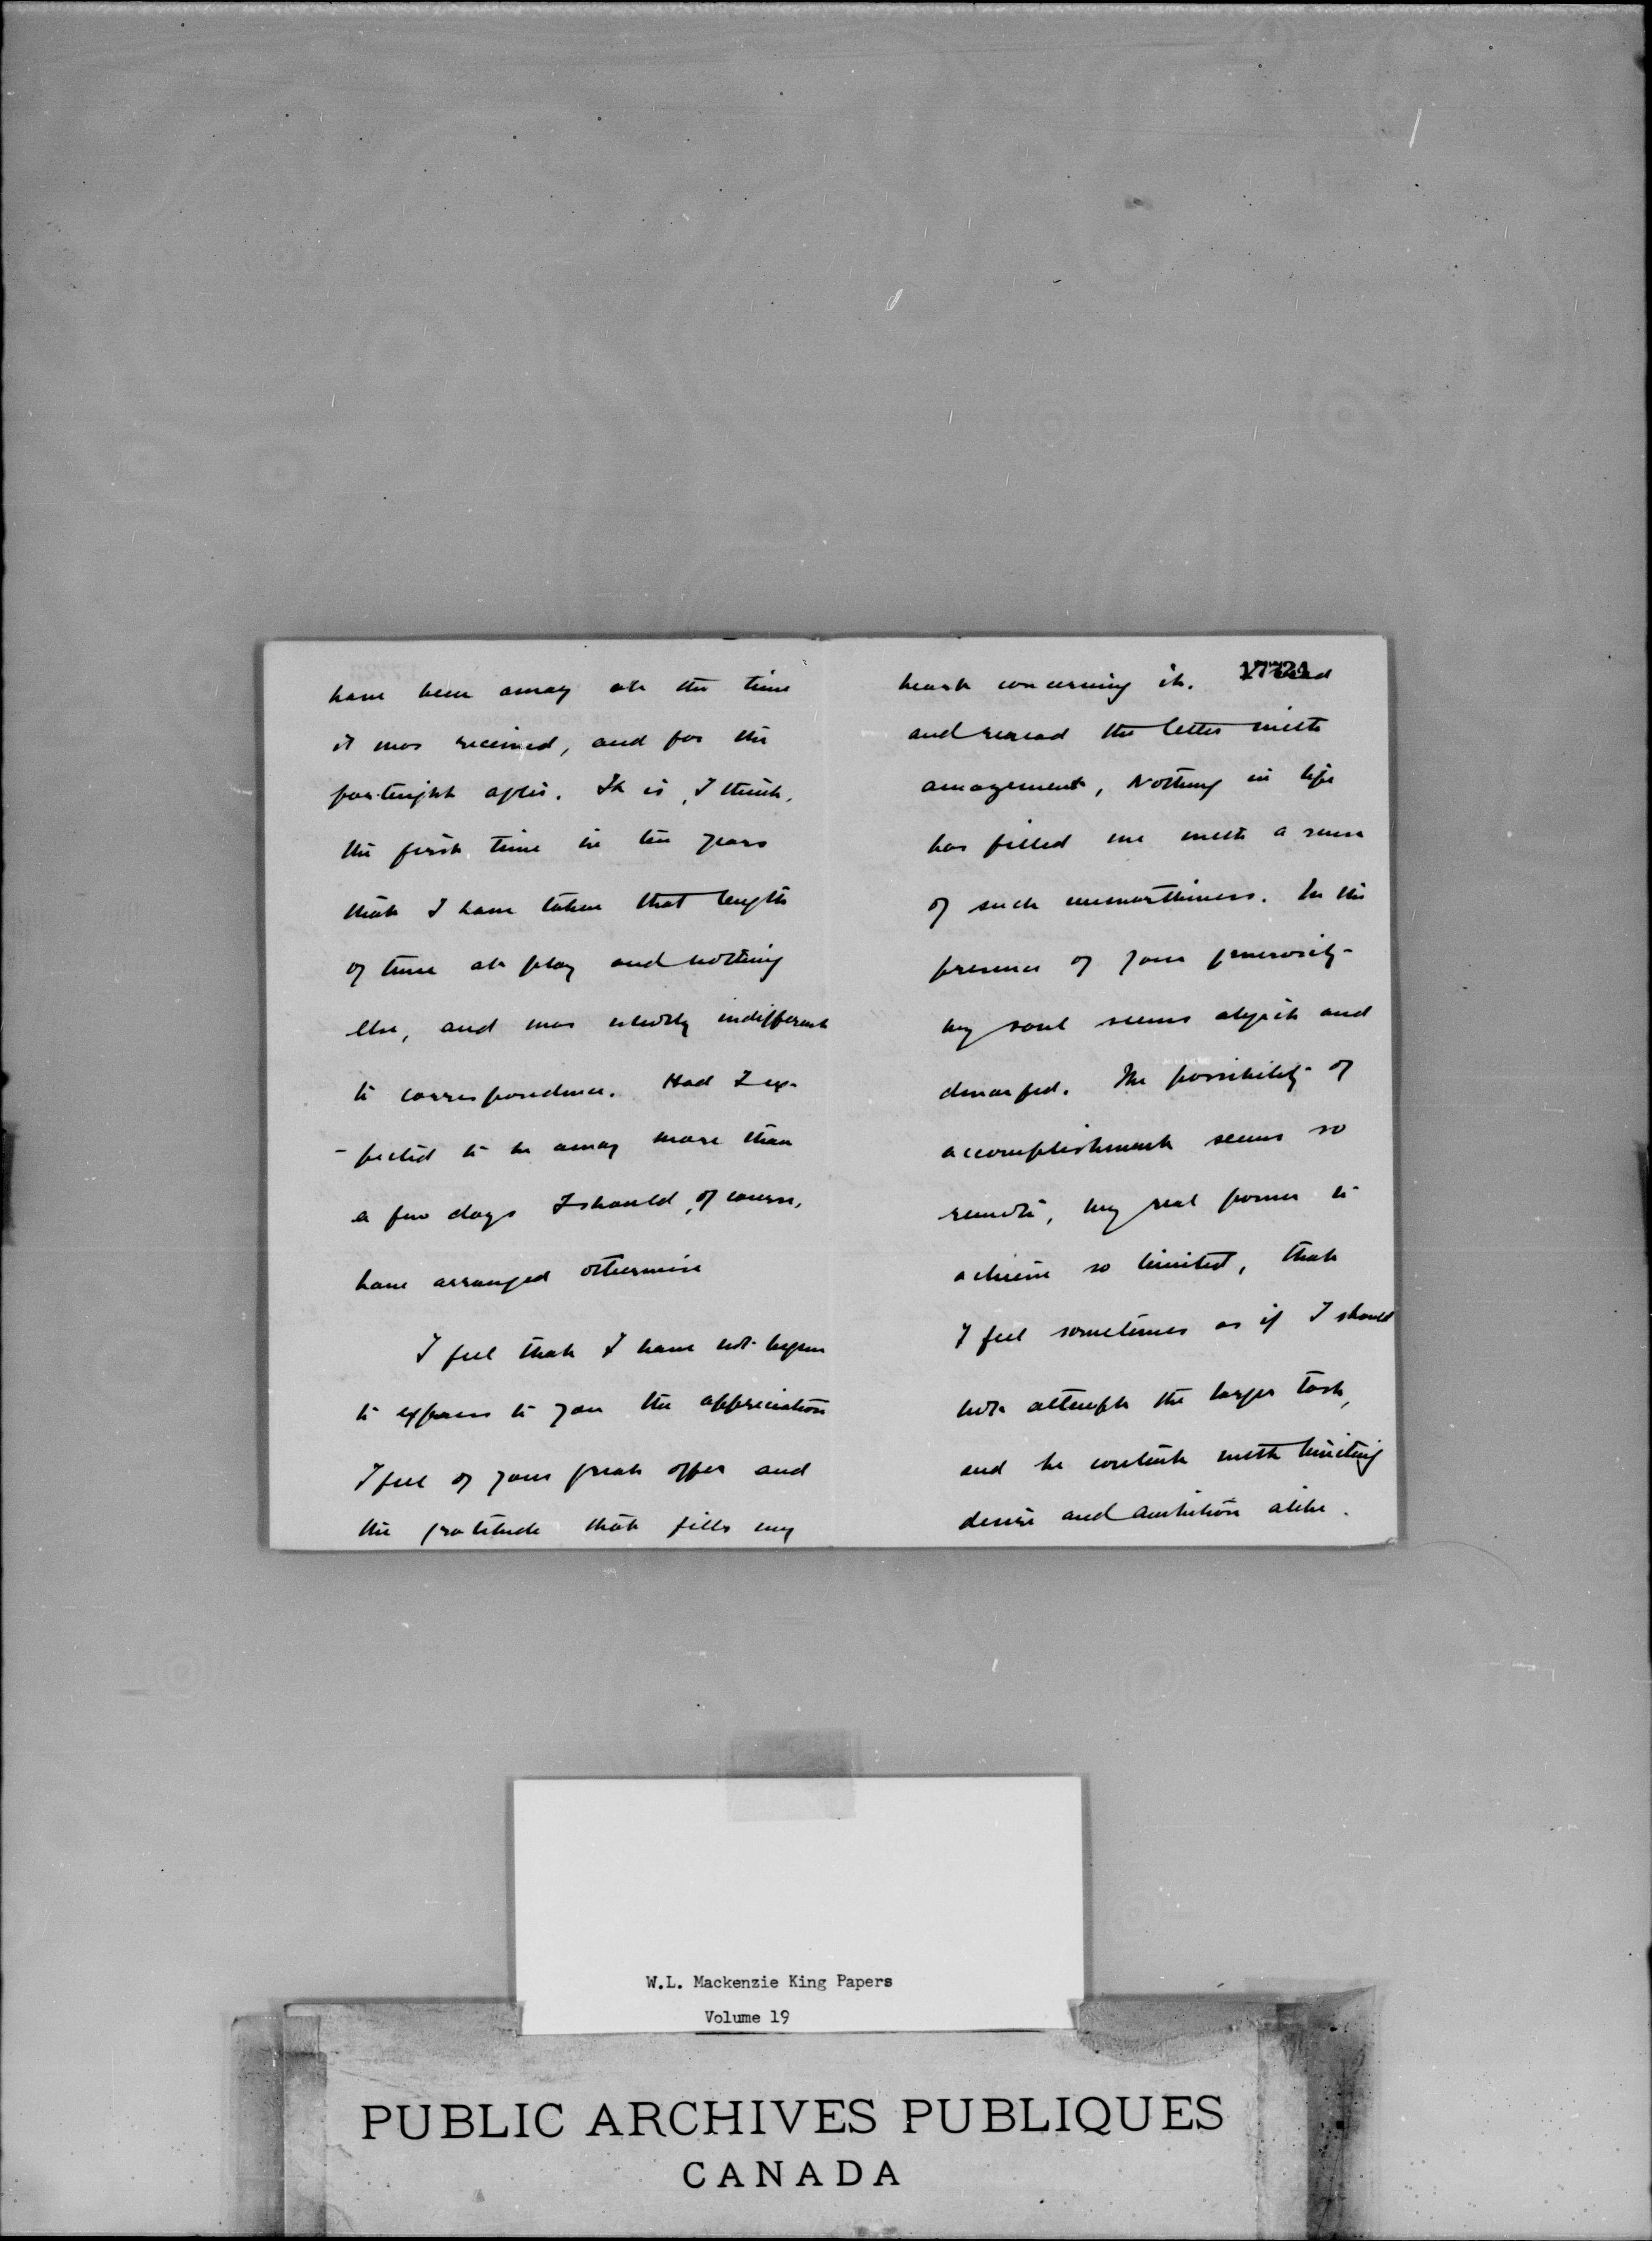 have been away at the time
it was received, and for the
fortnight after. It is, I think,
the first time in ten years
that I have taken that length
of time at play and nothing
else, and was utterly indifferent
to correspondence. Had I ex-
-pected to be away more than
a few days I should, of course,
have arranged otherwise
I feel that I have not begun
to express to you the appreciation
I feel of your great offer and
the gratitude that fills my
17724
heart concerning it. I read
and reread the letter with
amazement, Nothing in life
has filled me with a sense
of such unworthiness. In the
presence of your generosity
my soul seems abject and
dwarfed. The possibility of
accomplishment seems so
remote, my real power to
achieve so limited, that
I feel sometimes as if I should
not attempt the larger task,
and be content with limiting
desire and ambition alike.
W.L. Mackenzie King Papers
Volume 19
PUBLIC ARCHIVES PUBLIQUES
CANADA